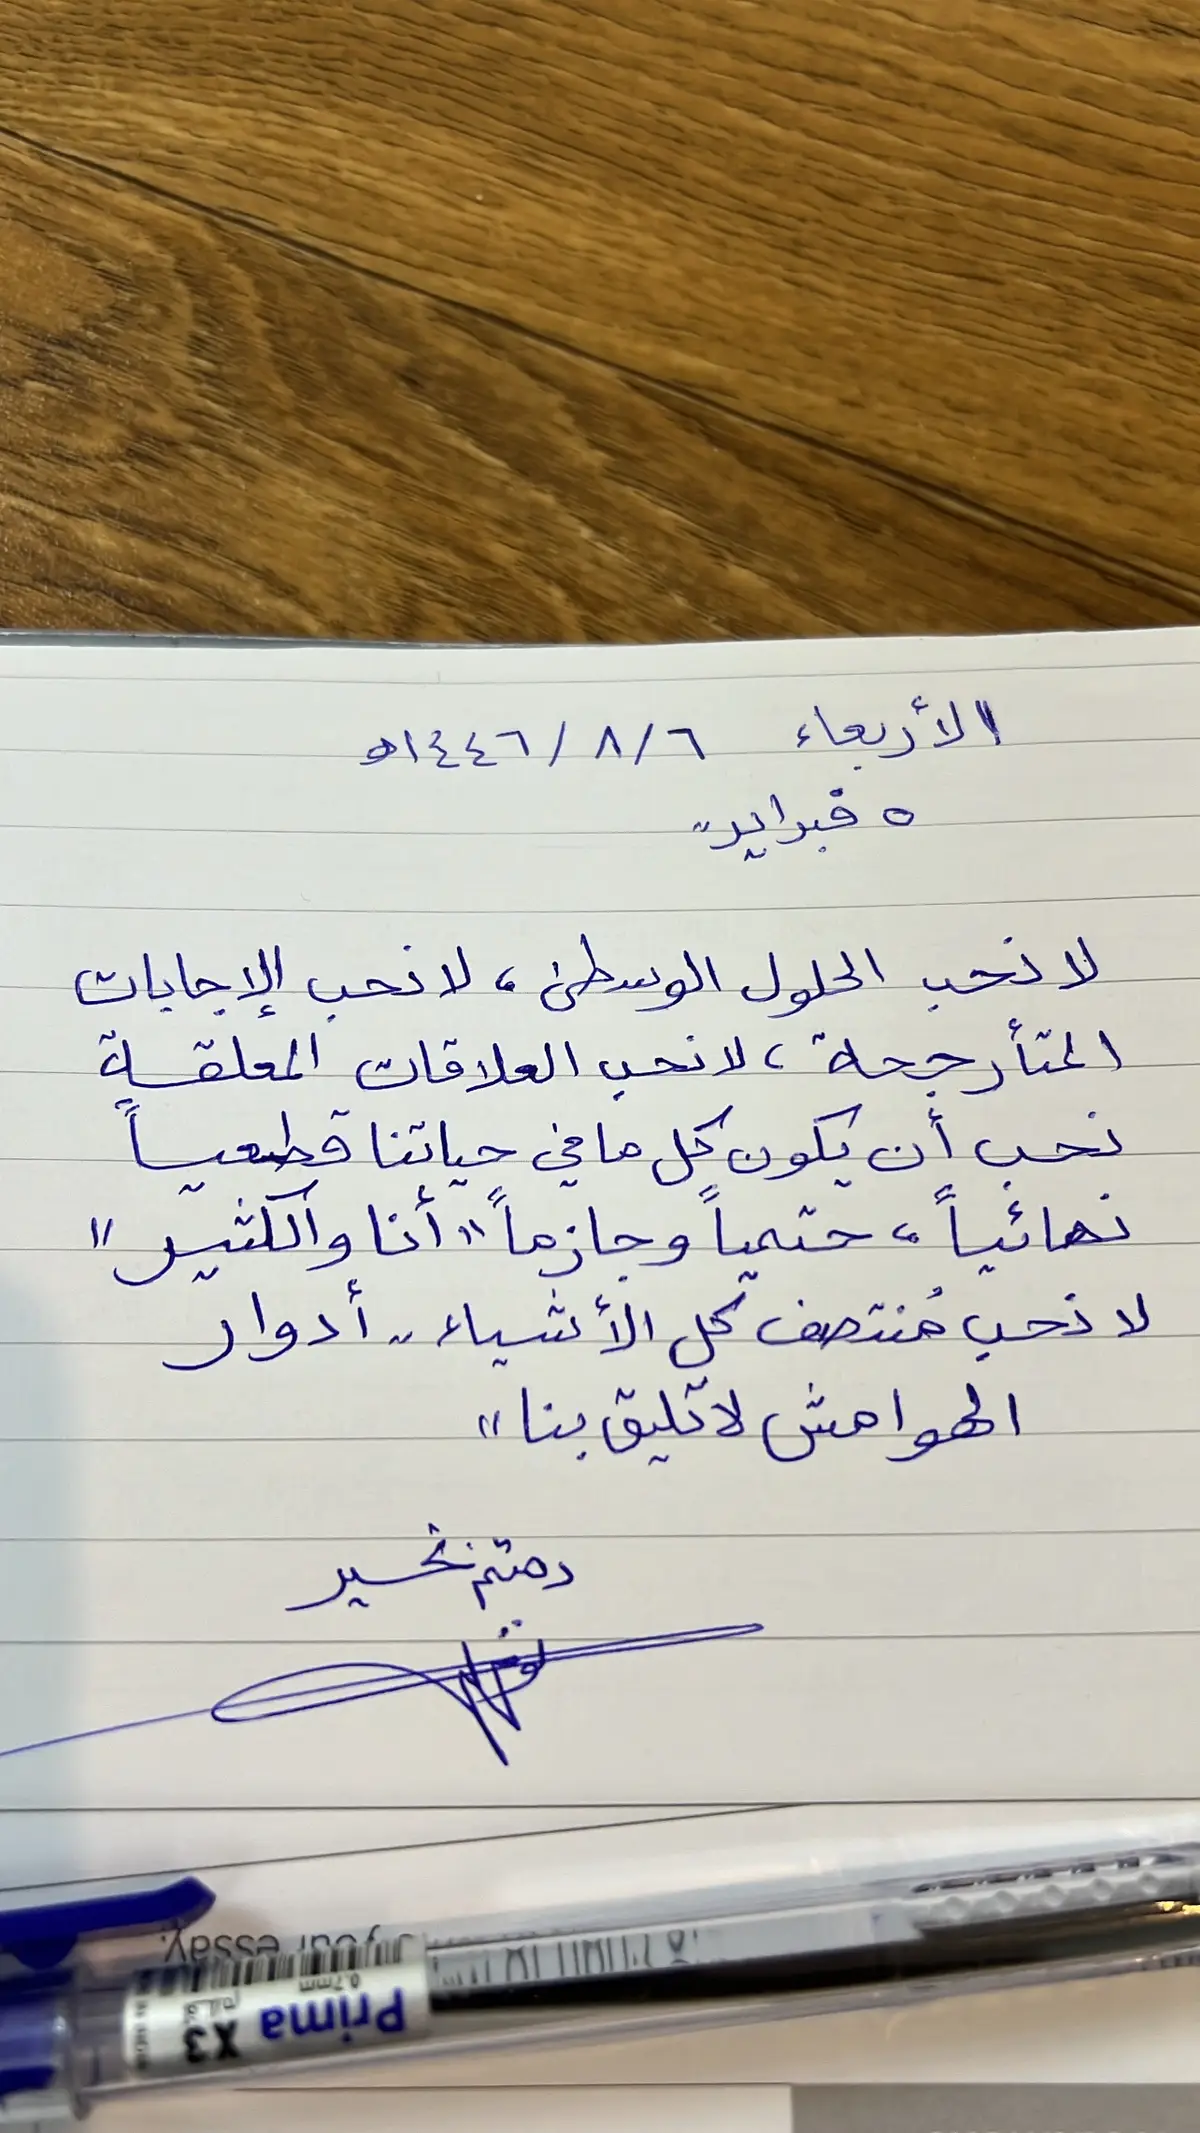 الأربعاء ٦/٨/١٤٤٦هـ
٥ فبراير..
لا نحب الحلول الوسطى، لا نحب الإجابات
المتأرجحة، لا نحب العلاقات المعلقة
نحب أن يكون كل ما في حياتنا قطعياً
نهائياً، حتمياً وجازماً "أنا والكثير"
لا نحب مُنتصف كل الأشياء.. أدوار
الهوامش لا تليق بنا"
دمتم بخير
your essay.
Prima X3
0.7mm